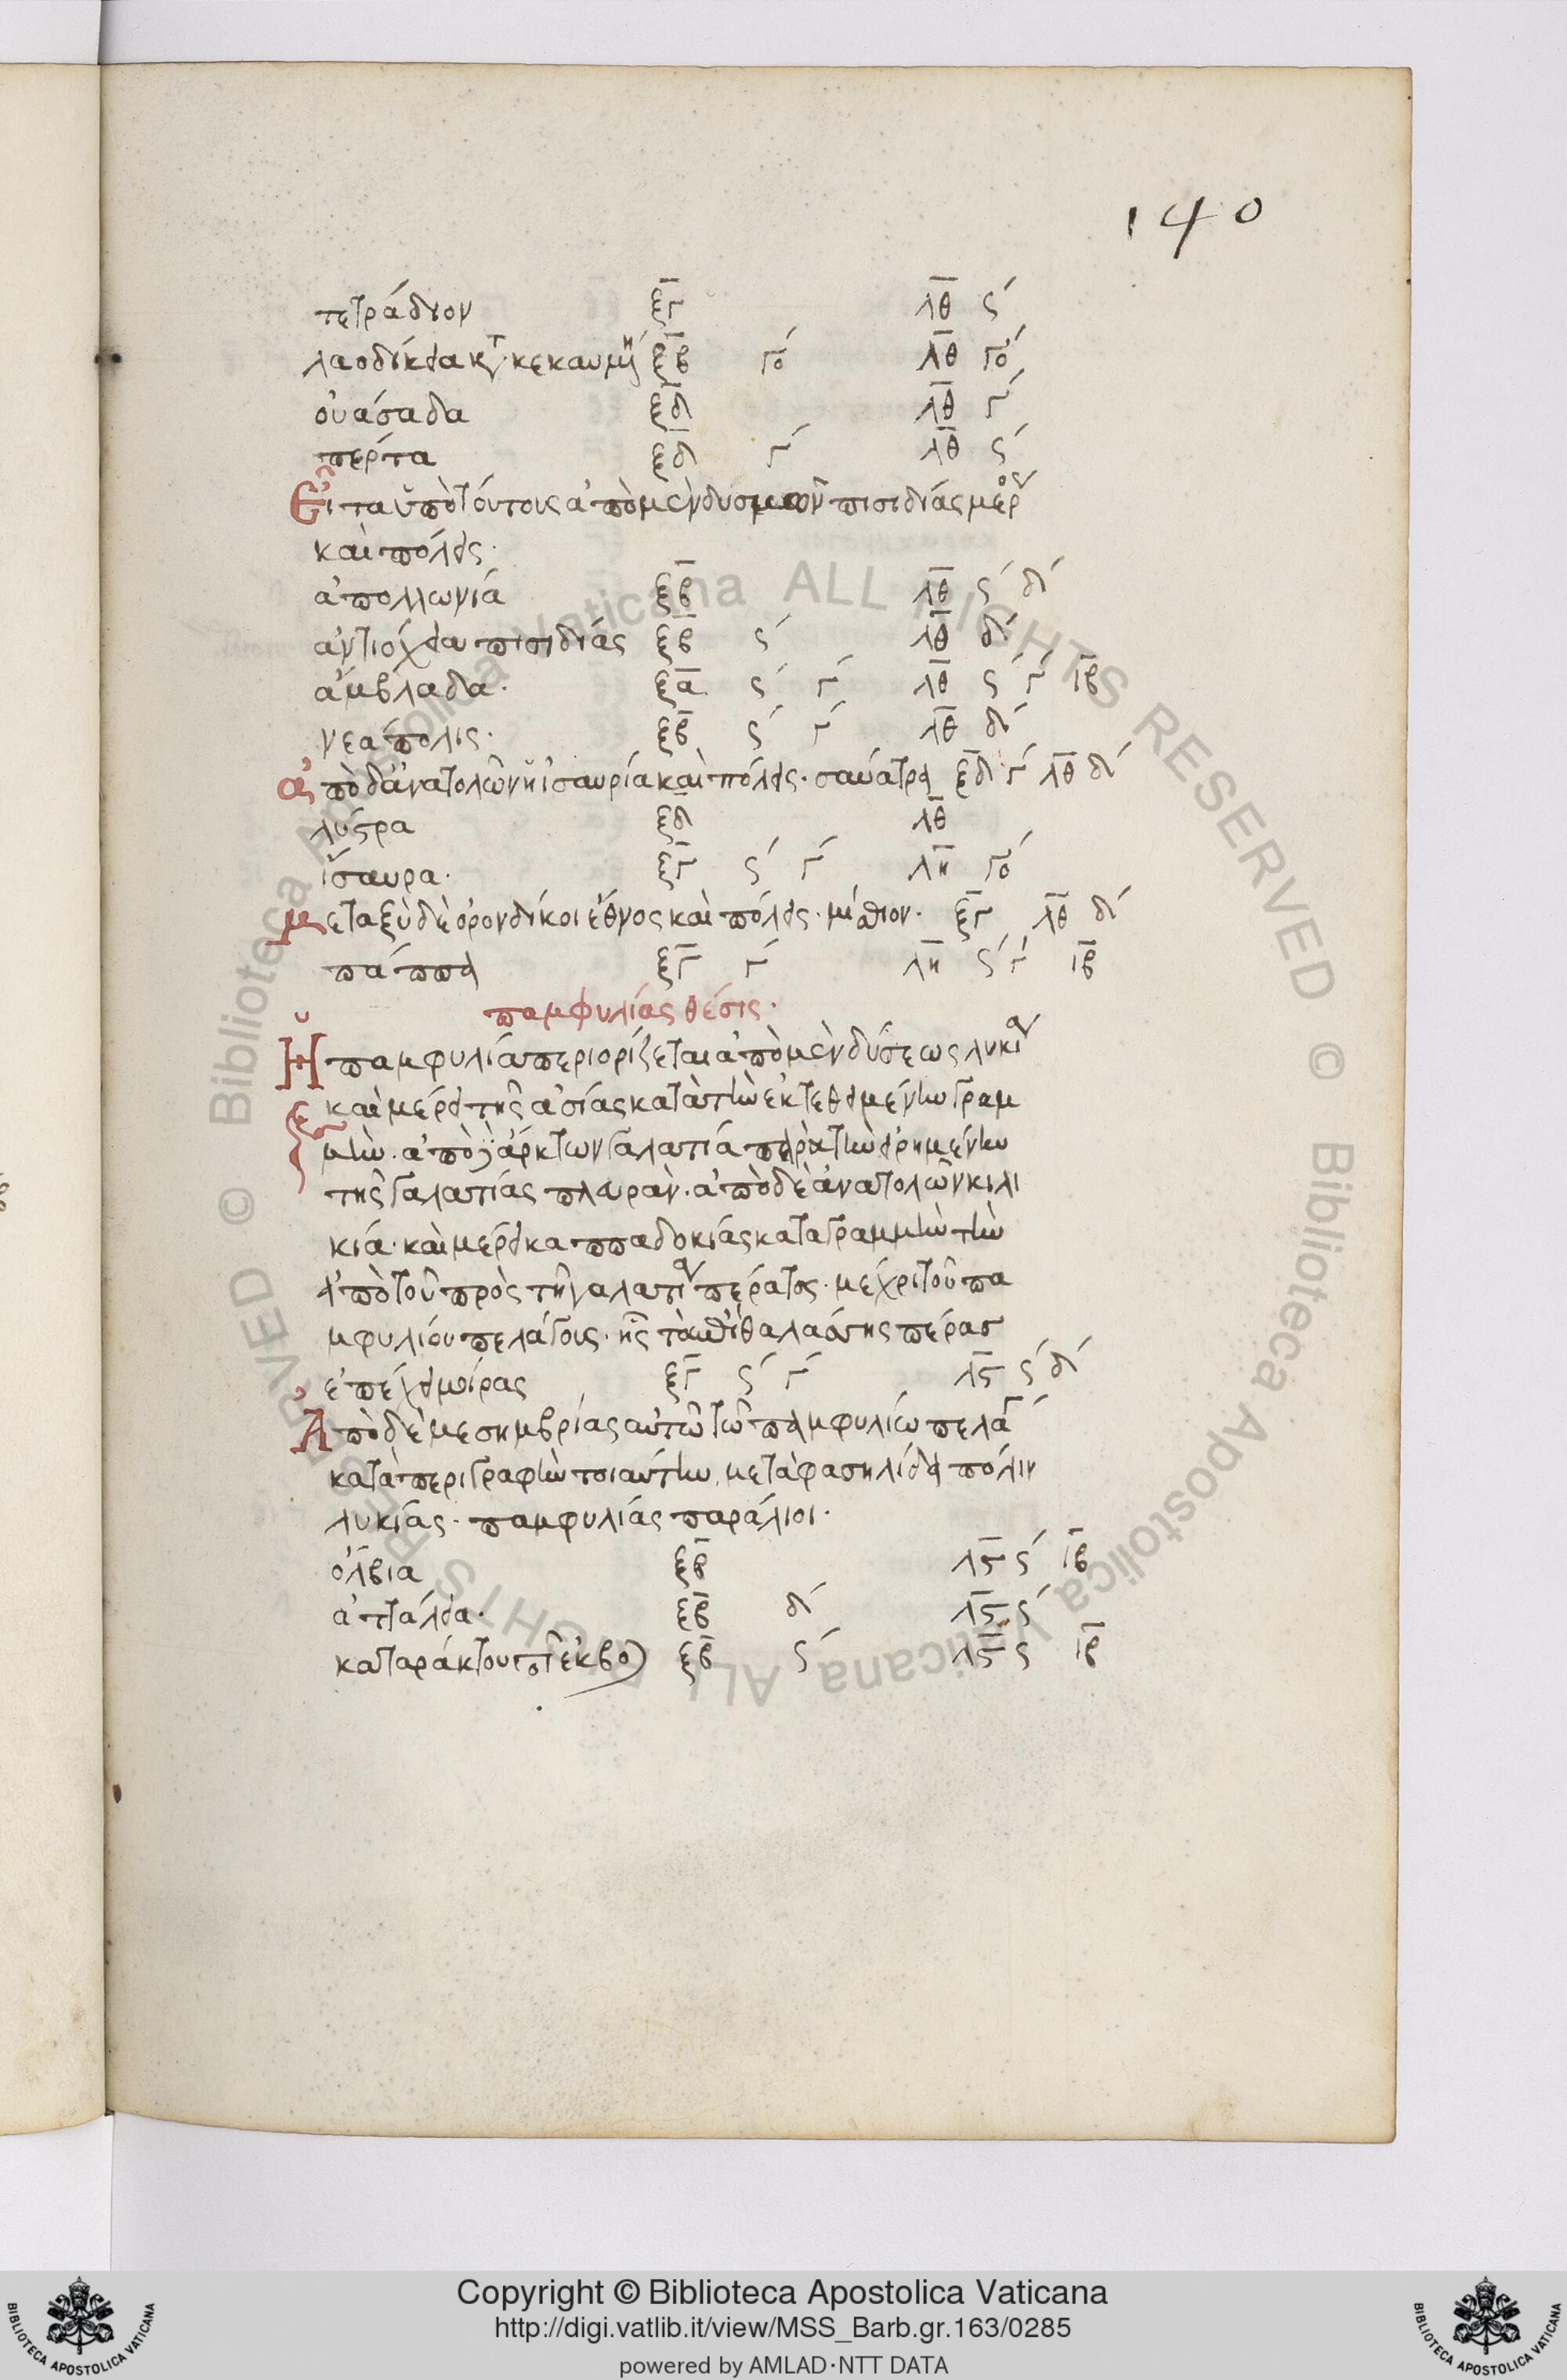 140
τετράδιον ξγ λθ ς´
λαοδίκεια κτ κεκαυμη ξβ γο´ λθ γο´
οὐάσαδα ξδ λθ γ´
πέρτα ξδ γ´ λθ ς´
Εἶτα ὑπὸ τούτους ἀπὸ μὲν δυσμῶν πισιδίας μερ
καὶ πόλεις·
ἀπολλωνία ξβ λθ ς´ δ´
ἀντιόχεια πισιδίας ξβ ς´ λθ δ´
ἄμβλαδα· ξα ς´ γ´ λθ ς´ γ´ ιβ
νεάπολις· ξβ ς´ γ´ λθ δ´
ἀπὸ δ ἀνατολῶν ἡ ἰσαυρία καὶ πόλεις· σαύατρα ξδ γ´ λθ δ´
λύστρα ξδ λθ
ἴσαυρα· ξγ ς´ γ´ λη γο´
μεταξὺ δὲ ὀρονδικοι ἔθνος καὶ πόλεις· μίσθιον· ξγ λθ δ´
πάππα ξγ γ´ λη ς´ γ´ ιβ
παμφυλίας θέσις·
Ἡ παμφυλία περιορίζεται ἀπὸ μὲν δύσεως λυκία
καὶ μέρει τῆς ἀσίας κατὰ τὴν ἐκτεθειμένην γραμ
μήν· ἀπὸ δὲ ἄρκτων γαλατία παρὰ τὴν εἰρημένην
τῆς γαλατίας πλευράν· ἀπὸ δὲ ἀνατολῶν κιλι
κία· καὶ μέρει καππαδοκίας κατὰ γραμμὴν τὴν
ἀπὸ τοῦ πρὸς τῇ γαλατία πέρατος· μέχρι τοῦ πα
μφυλίου πελάγους· ἧς τὸ ἐπὶ θαλάσσης πέρασ
ἐπέχει μοίρας ξγ ς´ γ´ λς ς´ δ´
Ἀπὸ δὲ μεσημβρίας αὐτῶ τῶ παμφυλίω πελάγ
κατὰ περιγραφὴν τοιαύτην· μετὰ φασηλίδα πόλιν
λυκίας· παμφυλίας παράλιοι·
ὀλβια ξβ λς ς´ ιβ
ἀττάλεια· ξβ δ´ λς ς´
καταράκτου ποτ ἐκβο ξβ ς´ λς ς ιβ
Copyright © Biblioteca Apostolica Vaticana
http://digi.vatlib.it/view/MSS_Barb.gr.163/0285
powered by AMLAD·NTT DATA
© Biblioteca Apostolica Vaticana ALL RIGHTS RESERVED
© Biblioteca Apostolica Vaticana ALL RIGHTS RESERVED
BIBLIOTECA APOSTOLICA VATICANA
BIBLIOTECA APOSTOLICA VATICANA